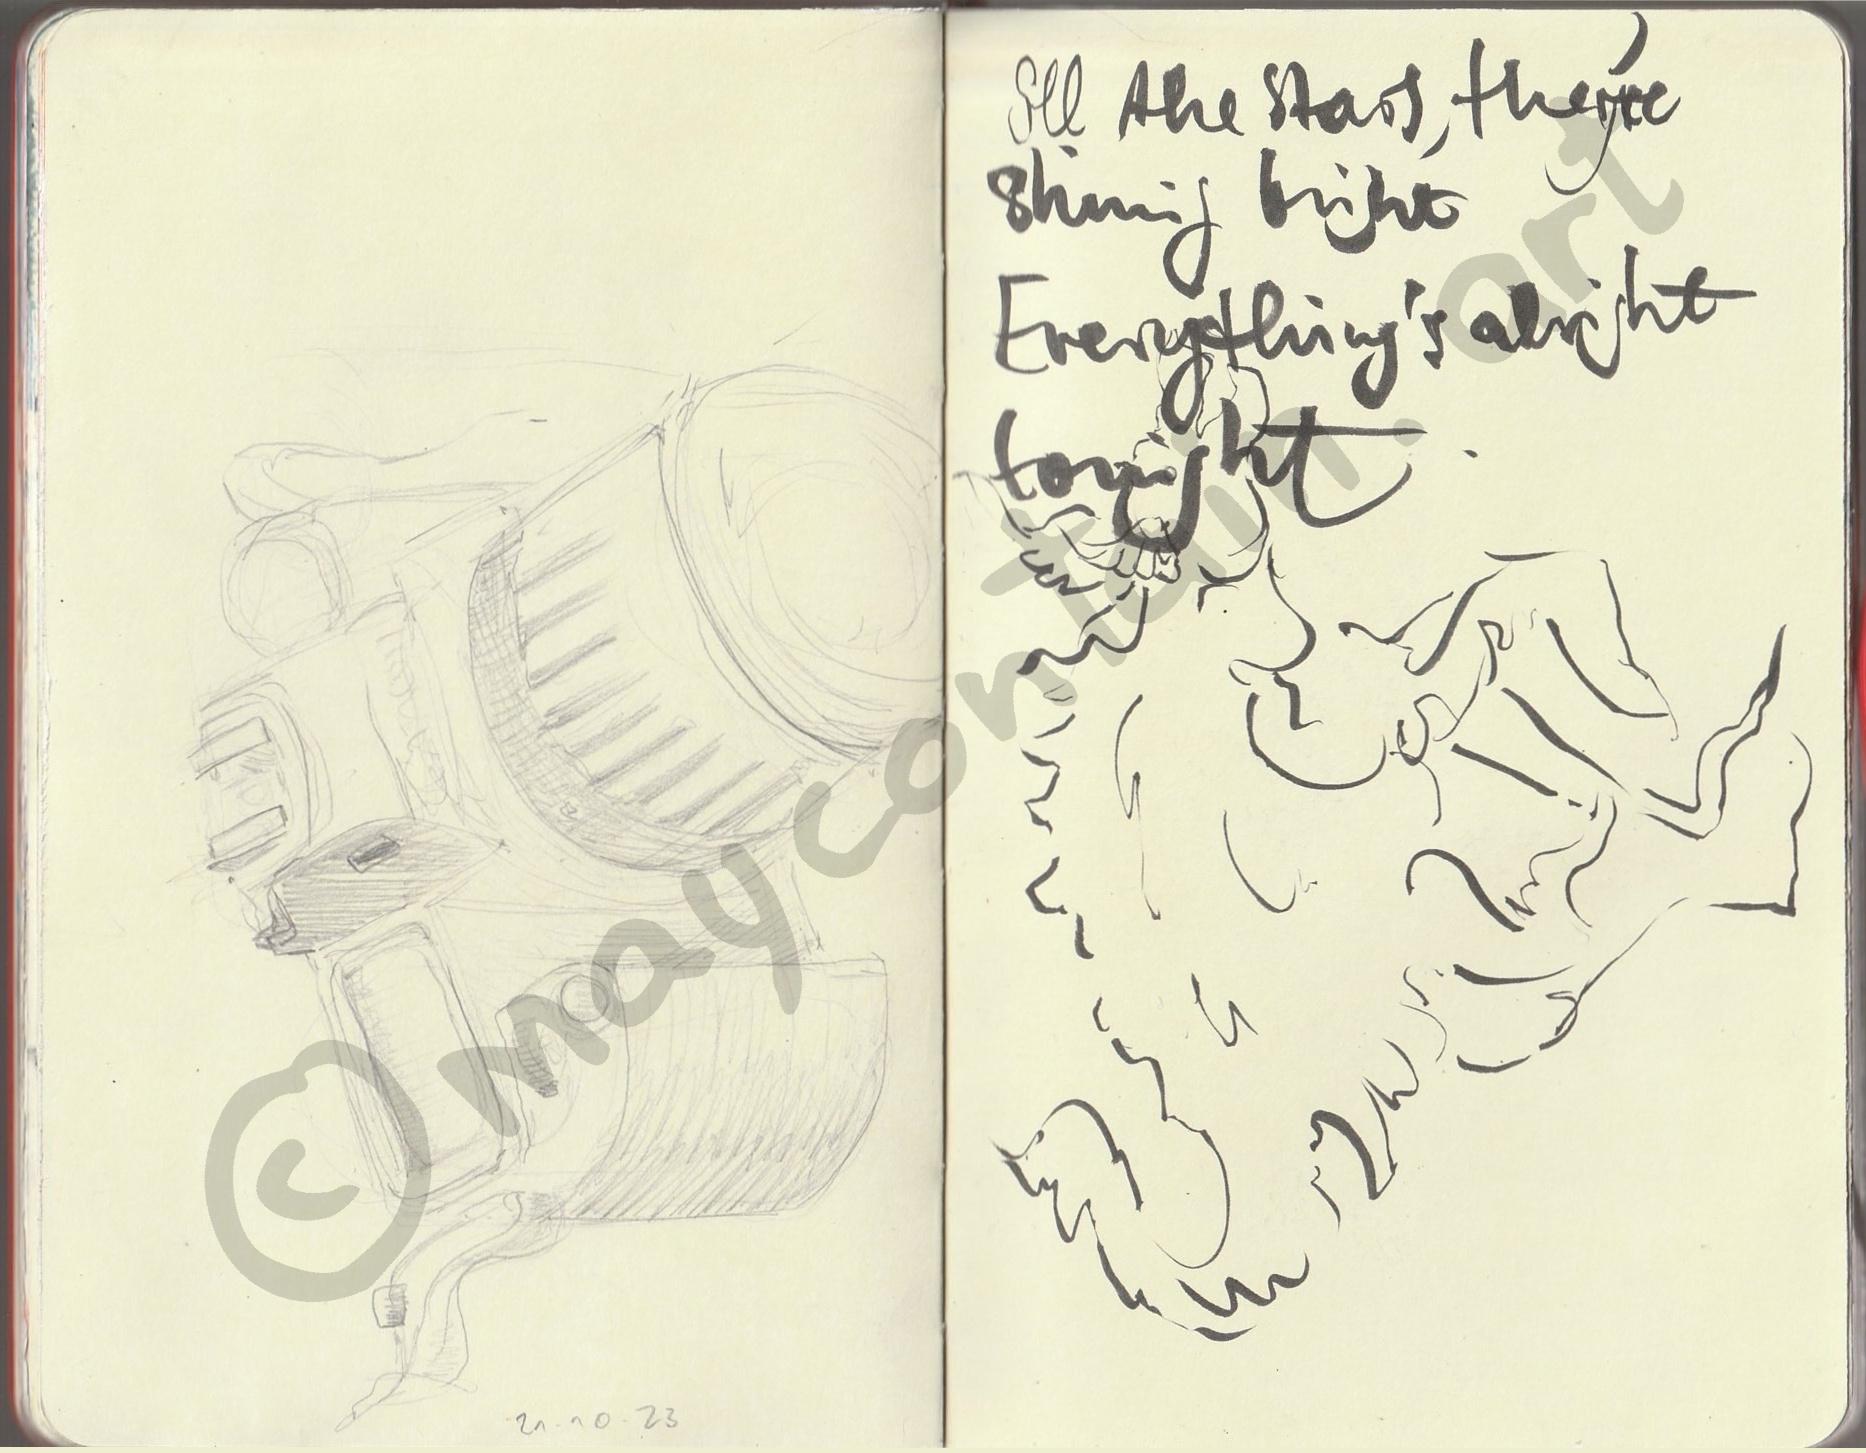 All the stars, they're
shining bright
Everything's alright
tonight.
21.10.23
© maycontain.art